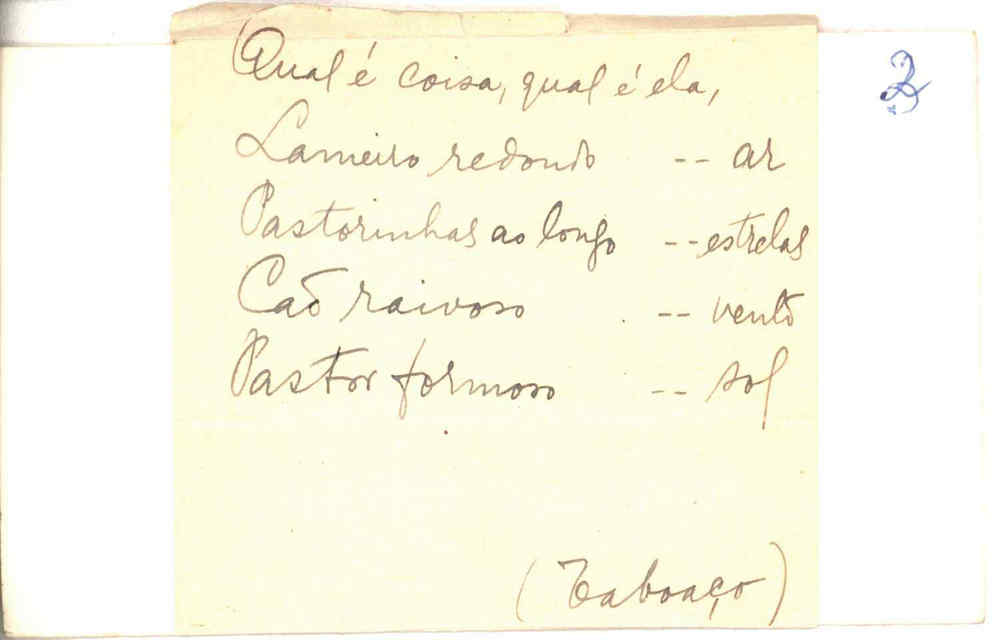 Qual é coisa, qual é ela,
Lameiro redondo -- ar
Pastorinhas ao longo -- estrelas
Caõ raivoso -- vento
Pastor formoso -- sol
(Taboaço)